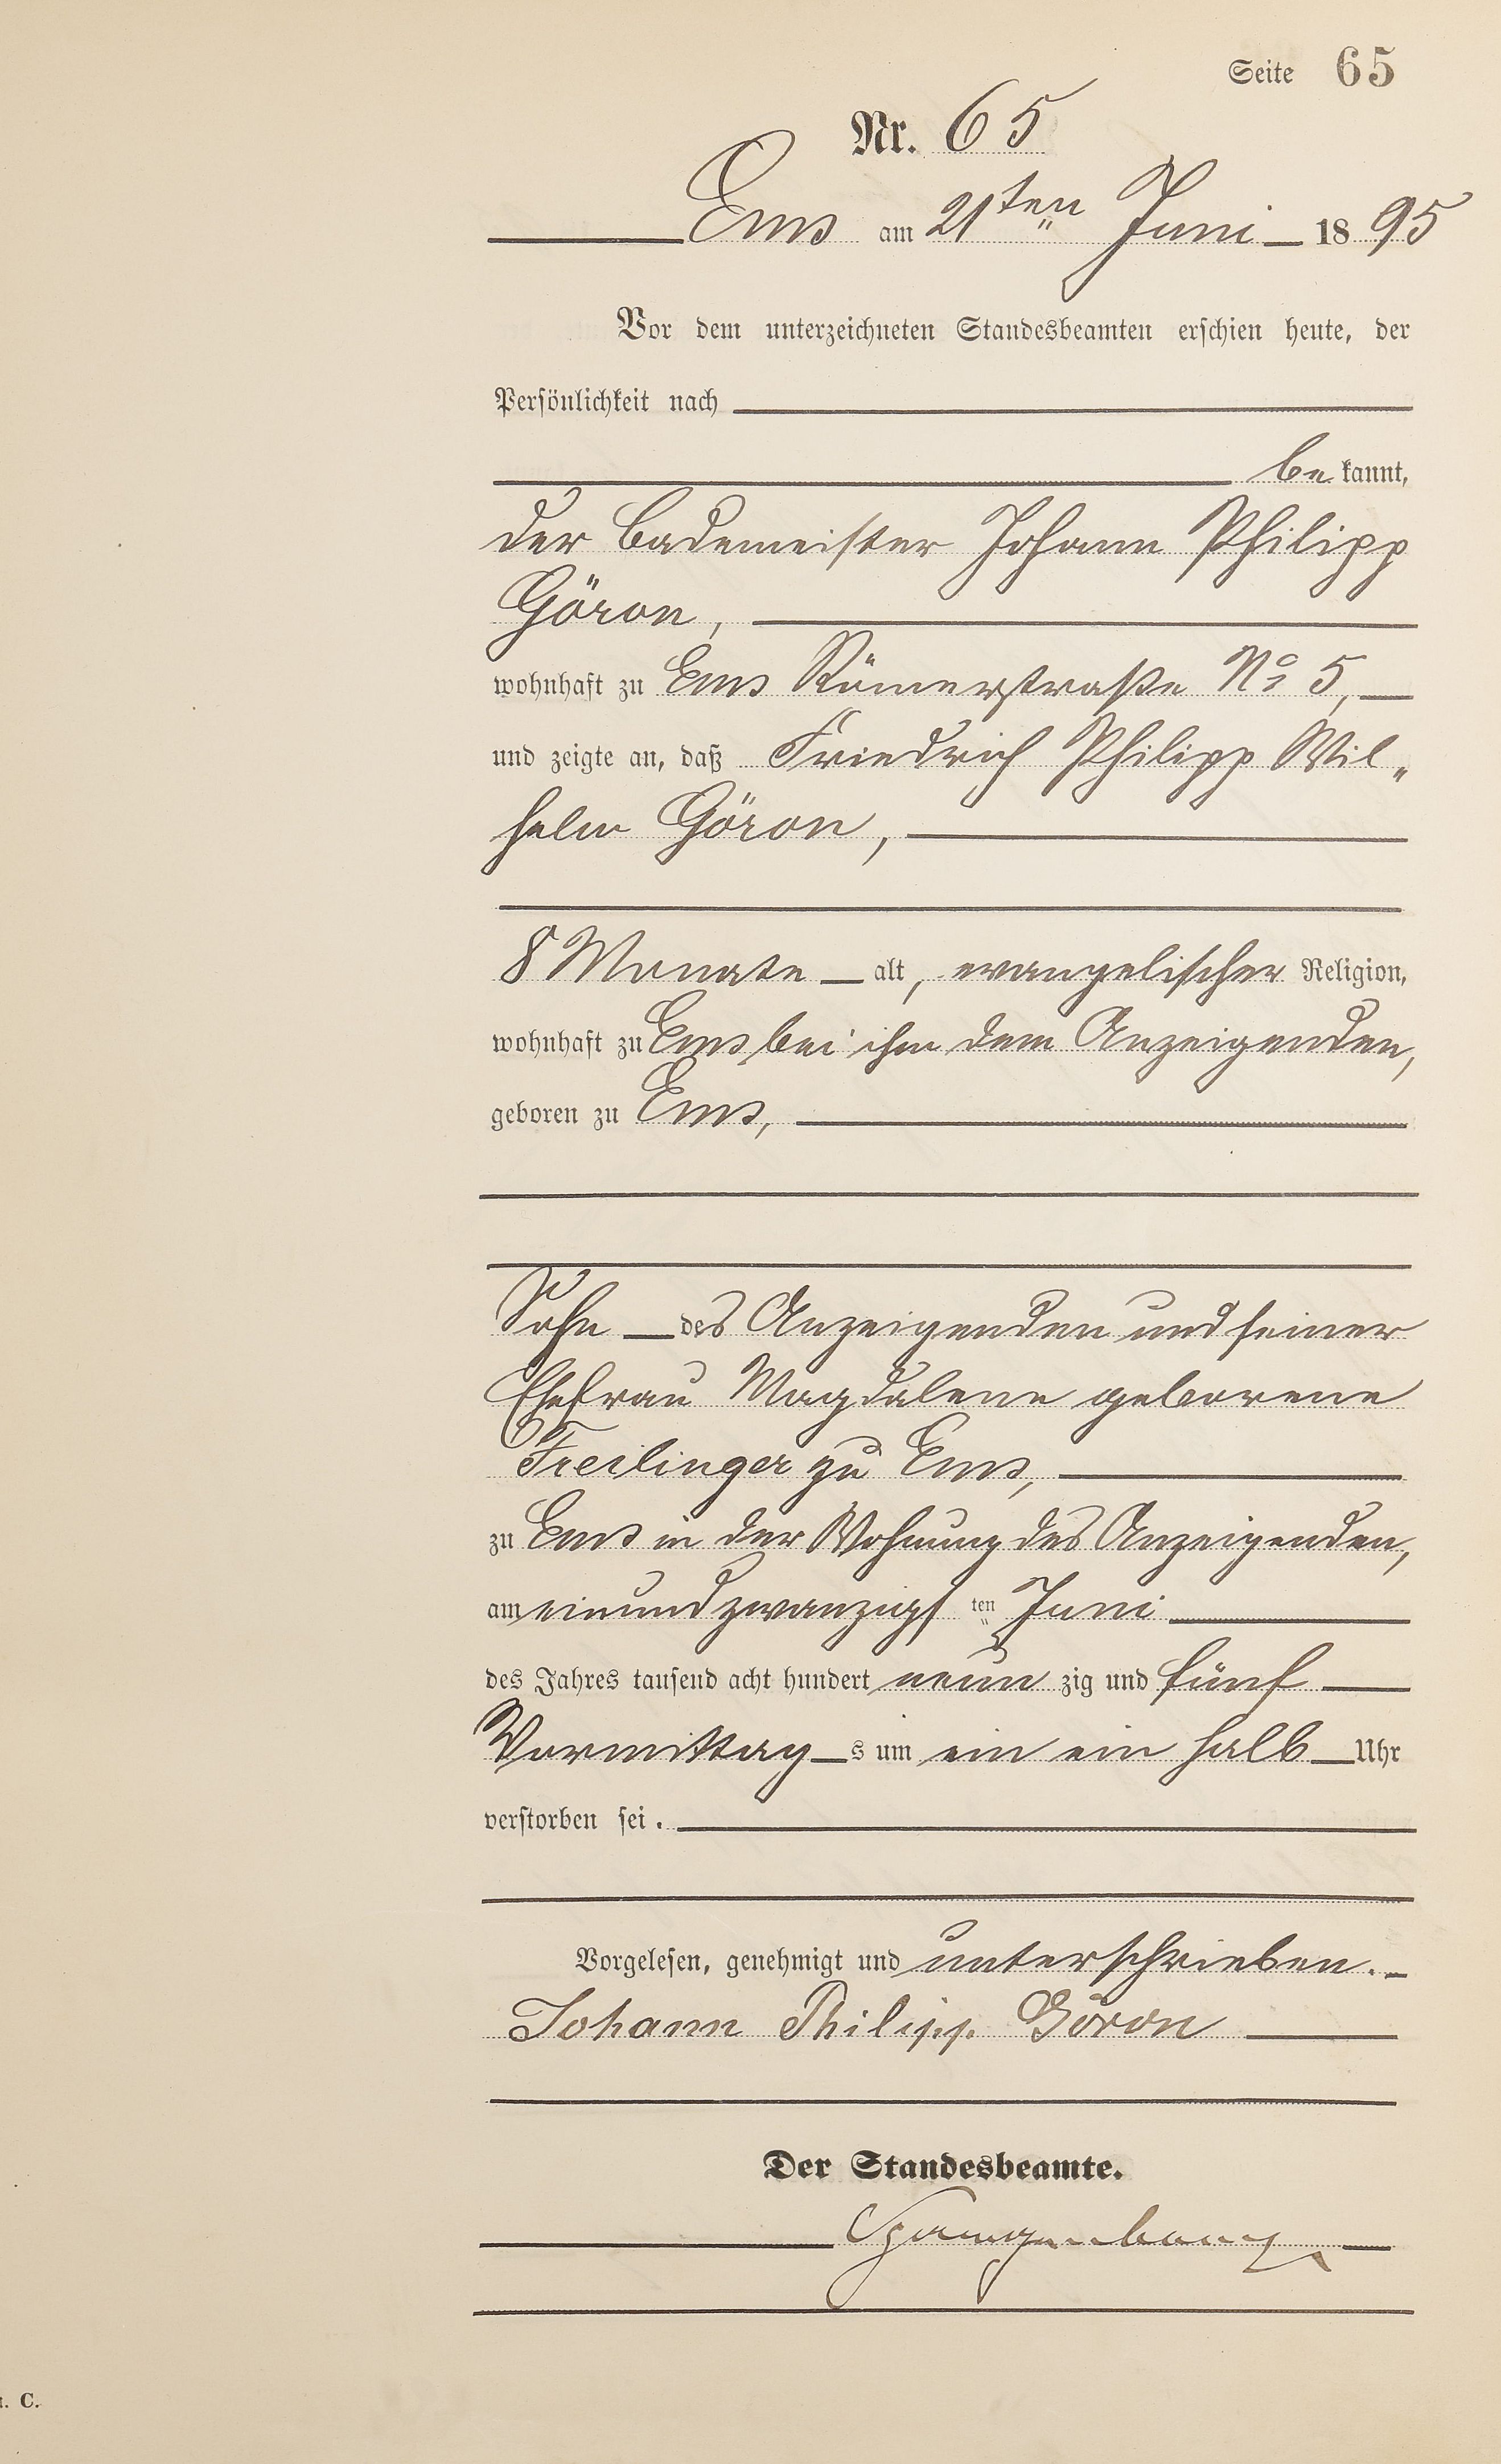 Seite 65
Nr. 65
Ems am 21ten Juni 1895
Vor dem unterzeichneten Standesbeamten erschien heute, der
Persönlichkeit nach
bekannt,
der Bademeister Johann Philipp
Göron,
wohnhaft zu Ems Römerstraße No 5,
und zeigte an, daß Friedrich Philipp Wil„
helm Göron,
8 Monate alt, evangelischer Religion,
wohnhaft zu Ems bei ihm dem Anzeigenden,
geboren zu Ems,
Sohn des Anzeigenden und seiner
Ehefrau Magdalene geborene
Freilinger zu Ems,
zu Ems in der Wohnung des Anzeigenden,
am einundzwanzigsten Juni
des Jahres tausend acht hundert neunzig und fünf
Vormittags um ein ein halb Uhr
verstorben sei.
Vorgelesen, genehmigt und unterschrieben.
Johann Philipp Göron
Der Standesbeamte.
C.